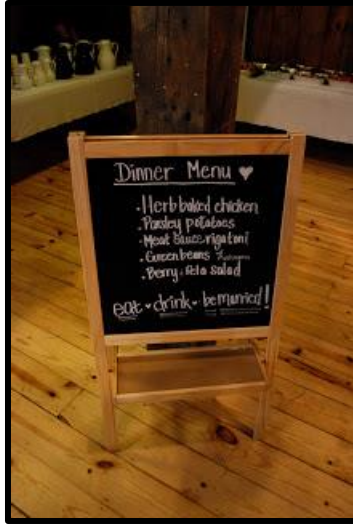 Dinner Menu ♥
• Herb baked chicken
• Parsley potatoes
• Meat Sauce rigatoni
• Green beans
• Berry & feta Salad
eat • drink • be married!